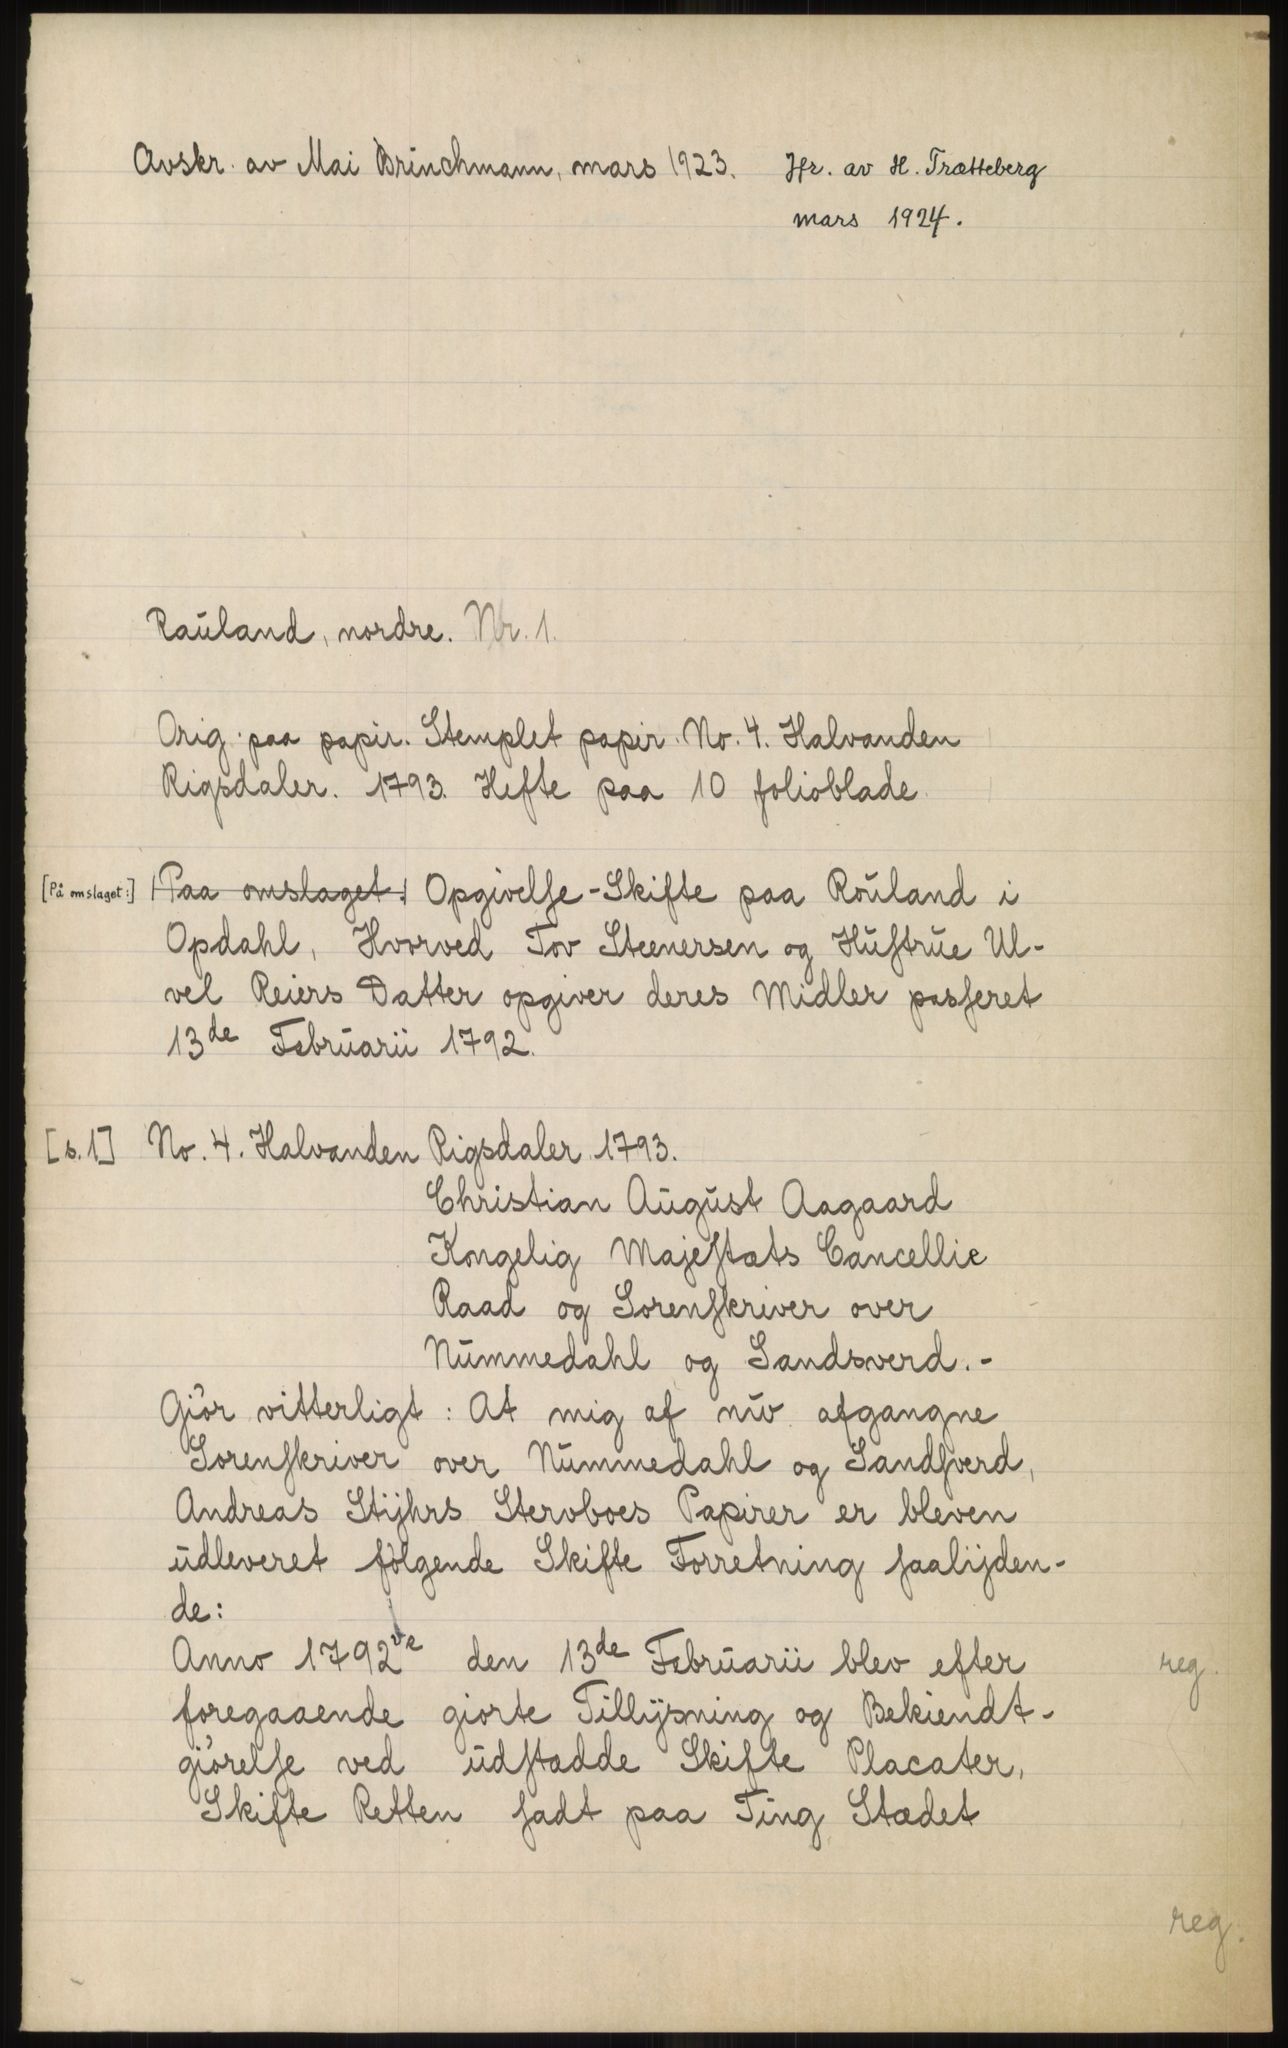 Avskr. av Mai Brinchmann, mars 1923. Jfr. av H. Trætteberg
mars 1924.
Rauland, nordre. Nr. 1.
Orig. paa papir. Stemplet papir No. 4. Halvanden
Rigsdaler. 1793. Hefte paa 10 folioblade.
[På omslaget:] Paa omslaget. Opgivelse-Skifte paa Rouland i
Opdahl, Hvorved Tov Steenersen og Hustrue Ul-
vel Reiers Datter opgiver deres Midler passeret
13de Februarii 1792.
[s.1] No. 4. Halvanden Rigsdaler 1793.
Christian August Aagaard
Kongelig Majestæts Cancellie
Raad og Sorenskriver over
Nummedahl og Sandsverd.-
Giör vitterligt: At mig af nuv. afgangne
Sorenskriver over Nummedahl og Sandsverd,
Andreas Stijhrs Stervboes Papirer er bleven
udleveret følgende Skifte Forretning saalijden-
de:
Anno 1792de den 13de Februarii blev efter
reg.
foregaaende giorte Tillijsning og Bekiendt-
giörelse ved udstædde Skifte Placater,
Skifte Retten sadt paa Ting Stædet
reg.